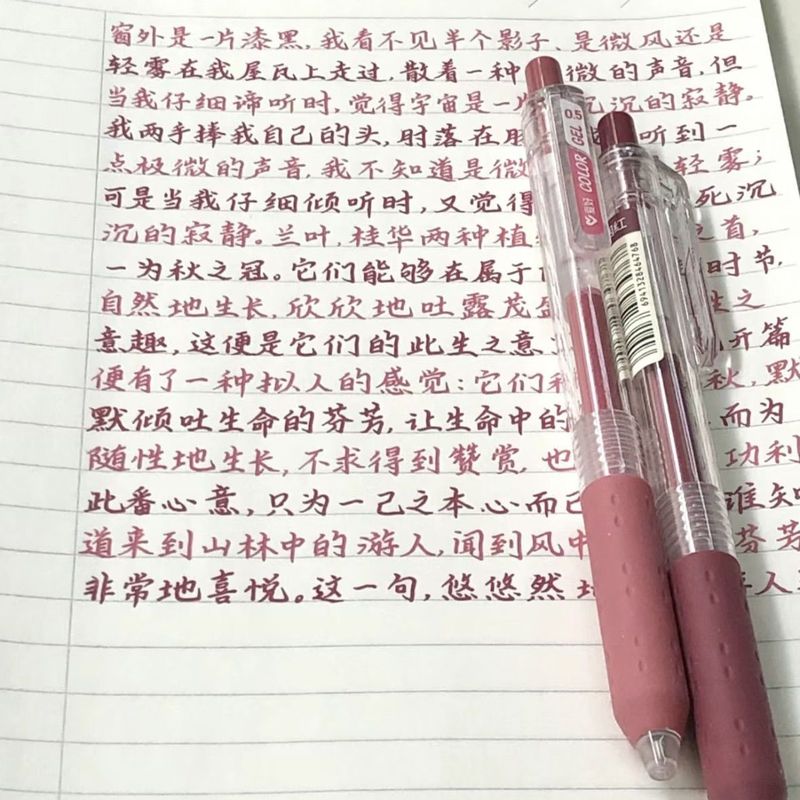 窗外是一片漆黑,我看不见半个影子、是微风还是
轻雾在我屋瓦上走过,散着一种 微的声音,但
当我仔细谛听时,觉得宇宙是一片 沉的寂静。
我两手捧我自己的头,肘落在 听到一
点极微的声音,我不知道是微 轻雾;
可是当我仔细倾听时,又觉得 死沉
沉的寂静。兰叶,桂华两种植 之首,
一为秋之冠。它们能够在属于 时节,
自然地生长,欣欣地吐露茂盛 之
意趣,这便是它们的此生之意 开篇
便有了一种拟人的感觉:它们 秋,默
默倾吐生命的芬芳,让生命中的 而为
随性地生长,不求得到赞赏,也 功利
此番心意,只为一己之本心而已 谁知
道来到山林中的游人,闻到风中 芬芳
非常地喜悦。这一句,悠悠然 人
0.5
GEL
COLOR
爱好
红
6941328464768